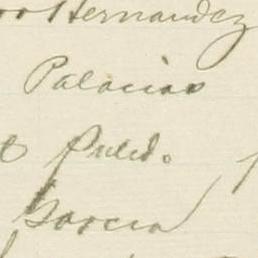 Hernandez
Palacios
Pulid.
Garcia